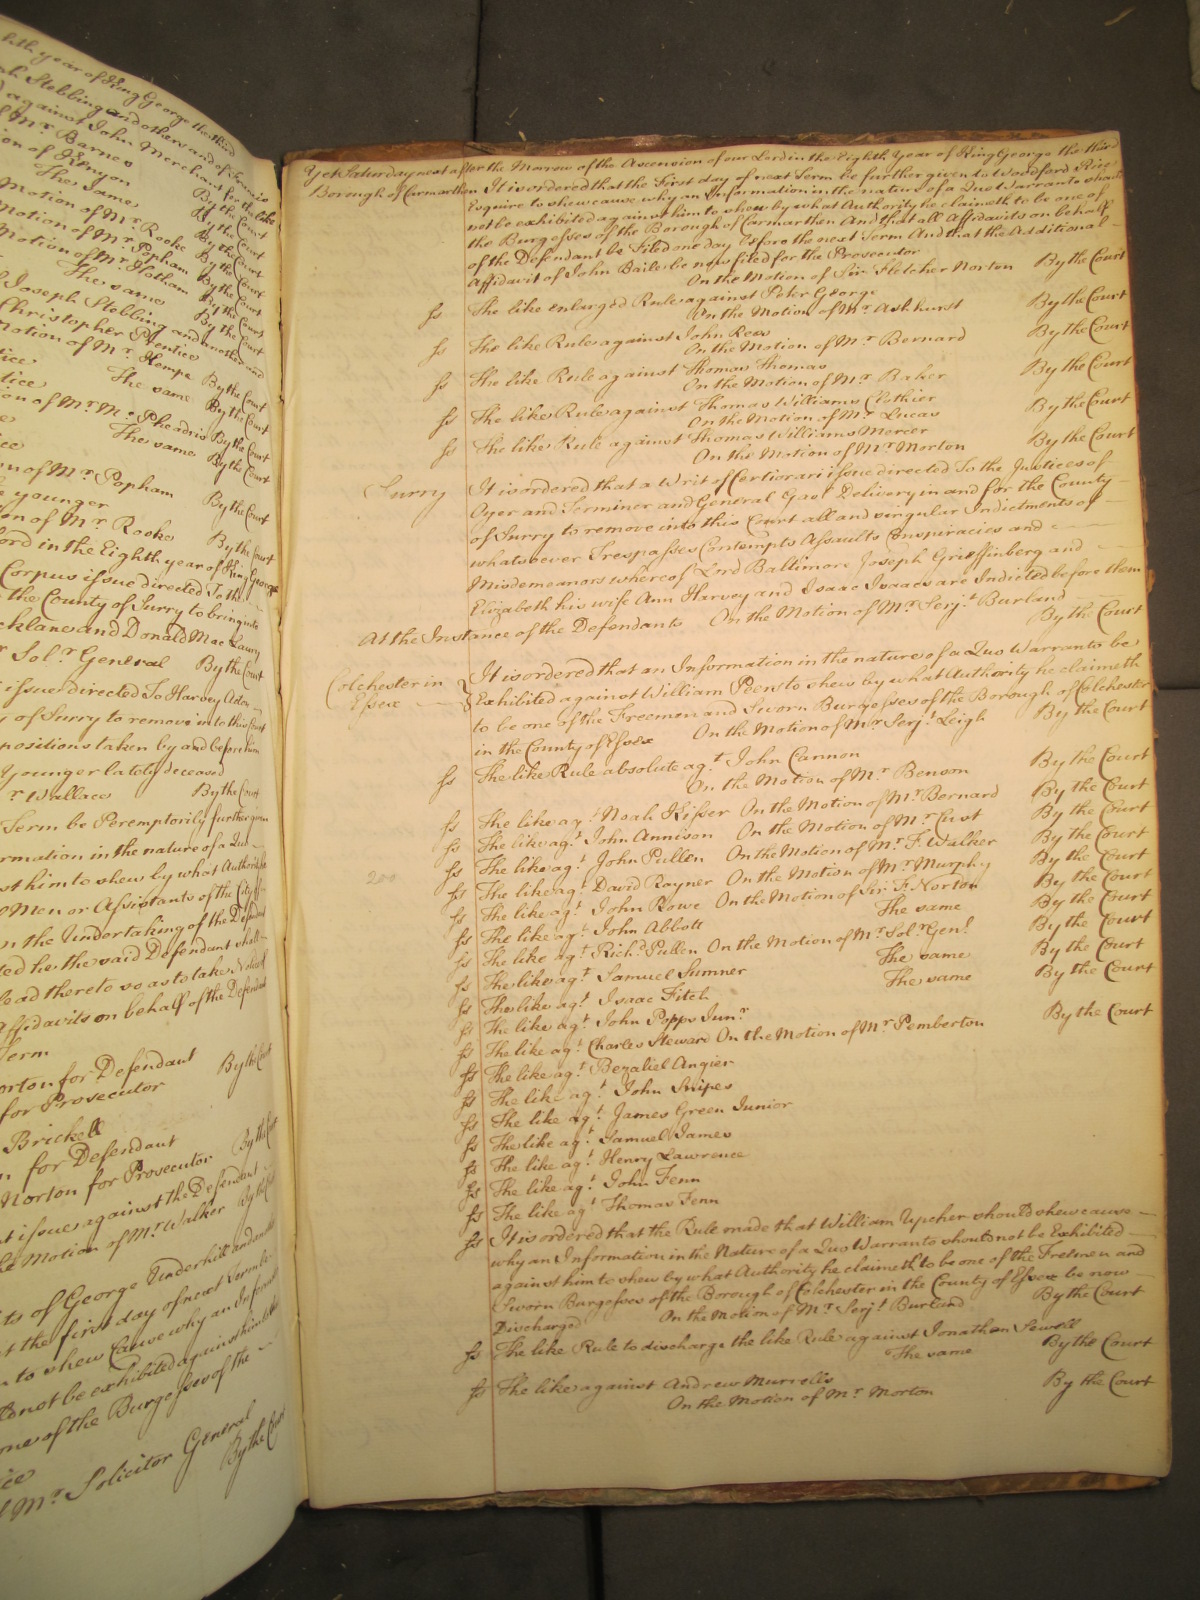 hth year of King George the third
Stebbing and others and of Francis
against John Merchant for the like
Mr. Barnes By the Court
ion of Kenyon By the Court
The same By the Court
Motion of Mr. Rooke By the Court
Motion of Mr. Popham By the Court
Motion of Mr. Hotham By the Court
The same By the Court
Joseph Stebbing and another and
Christopher Prentice
Motion of Mr. Kempe By the Court
The same By the Court
tice
on of Mr. Mc. Pheadris By the Court
The same By the Court
n of Mr. Popham By the Court
e younger
on of Mr. Rooke By the Court
ord in the Eighth year of King George
Corpus issue directed To the
the County of Surry to bring
cklane and Donald Mac Laury
r Sol.r General By the Court
issue directed To Harvey
y of Surry to remove into this Court
positions taken by and before him
Younger lately deceased
r Wallace By the Court
Term be Peremptorily further given
rmation in the nature of a Quo
st him to shew by what Authority
Men or Assistants of the City
n the Undertaking of the Defendant
ed he the said Defendant shall
lead thereto so as to take Notice of
Affidavits on behalf of the Defendant
Term
orton for Defendant By the Court
for Prosecutor
Brickell
n for Defendant By the Court
Norton for Prosecutor
t issue against the Defendant
he Motion of Mr. Walker By the Court
ts of George Underhill and
t the first day of next Term be
to shew Cause why an Inform
d not be exhibited against him
me of the Burgesses of the
ice
Mr. Solicitor General
By the Court
Yet Saturday next after the Morrow of the Ascension of our Lord in the Eighth Year of King George the third
Borough of Carmarthen It is ordered that the First day of next Term be further given to Woodford Rice
Esquire to shew cause why an Information in the nature of a Quo Warranto should
not be exhibited against him to shew by what Authority he claimeth to be one of
the Burgesses of the Borough of Carmarthen And that all Affidavits on behalf
of the Defendant be Filed one day before the next Term And that the Additional
Affidavit of John Baile be now filed for the Prosecutor
On the Motion of Sir. Fletcher Norton By the Court
ss The like enlarged Rule against Peter George
On the Motion of Mr. Ashhurst By the Court
ss The like Rule against John Rees
On the Motion of Mr. Bernard By the Court
ss The like Rule against Thomas Thomas
On the Motion of Mr. Baker By the Court
ss The like Rule against Thomas Williams Clothier
On the Motion of Mr. Lucas By the Court
ss The like Rule against Thomas Williams Mercer
On the Motion of Mr. Morton By the Court
Surry It is ordered that a Writ of Certiorari issue directed To the Justices of
Oyer and Terminer and General Gaol Delivery in and for the County
of Surry to remove into this Court all and singular Indictments of
whatsoever Trespasses Contempts Assaults Conspiracies and
Misdemeanors whereof Lord Baltimore Joseph Grieffinberg and
Elizabeth his wife Ann Harvey and Isaac Isaacs are Indicted before them
At the Instance of the Defendants On the Motion of Mr. Serjt. Burland By the Court
Colchester in Essex It is ordered that an Information in the nature of a Quo Warranto be
Exhibited against William Peens to shew by what Authority he claimeth
to be one of the Freemen and Sworn Burgesses of the Borough of Colchester
in the County of Essex On the Motion of Mr. Serjt. Leigh By the Court
ss The like Rule absolute agt. John Cannon
On the Motion of Mr. Benson By the Court
ss The like agt. Noah Kisser On the Motion of Mr. Bernard By the Court
ss The like agt. John Annison On the Motion of Mr. Cust By the Court
ss The like agt. John Pullen On the Motion of Mr. F. Walker By the Court
200 ss The like agt. David Rayner On the Motion of Mr. Murphy By the Court
ss The like agt. John Rowe On the Motion of Sir. F. Norton By the Court
ss The like agt. John Abbott The same By the Court
ss The like agt. Richd. Pullen On the Motion of Mr. Solr. Genl. By the Court
ss The like agt. Samuel Sumner The same By the Court
ss The like agt. Isaac Fitch The same By the Court
ss The like agt. John Popps Junr.
ss The like agt. Charles Steward On the Motion of Mr. Pemberton By the Court
ss The like agt. Bezaliel Angier
ss The like agt. John Snipes
ss The like agt. James Green Junior
ss The like agt. Samuel James
ss The like agt. Henry Lawrence
ss The like agt. John Fenn
ss The like agt. Thomas Fenn
ss It is ordered that the Rule made that William Upcher should shew cause
why an Information in the Nature of a Quo Warranto should not be Exhibited
against him to shew by what Authority he claimeth to be one of the Freemen and
Sworn Burgesses of the Borough of Colchester in the County of Essex be now
Discharged On the Motion of Mr. Serjt. Burland By the Court
ss The like Rule to discharge the like Rule against Jonathan Sewell
The same By the Court
ss The like against Andrew Murrells
On the Motion of Mr. Morton By the Court